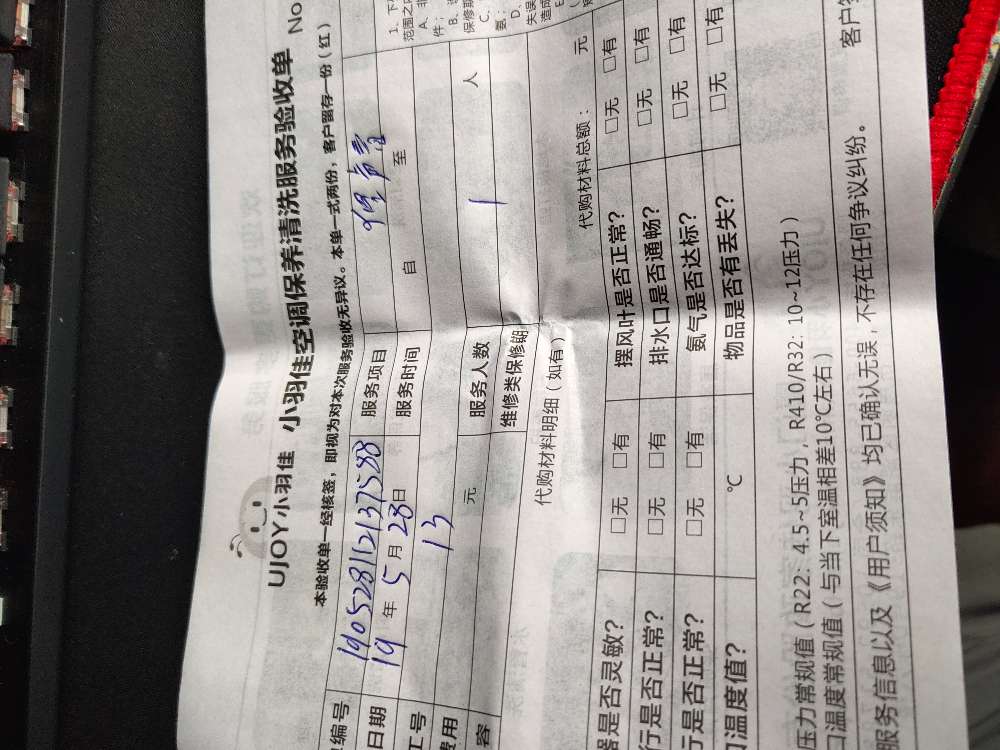 UJOY小羽佳 小羽佳空调保养清洗服务验收单 No
本验收单一经核签，即视为对本次服务验收无异议。本单一式两份，客户留存一份（红）
编号 190528112137588 服务项目
日期 19 年 5 月 28 日 服务时间 自 至
工号 13
费用 元 服务人数 1 人
容 维修类保修期
代购材料明细（如有） 代购材料总额： 元
器是否灵敏？ □无 □有 摆风叶是否正常？ □无 □有
行是否正常？ □无 □有 排水口是否通畅？ □无 □有
行是否正常？ □无 □有 氨气是否达标？ □无 □有
口温度值？ ℃ 物品是否有丢失？ □无 □有
压力常规值（R22：4.5~5压力，R410/R32：10~12压力）
口温度常规值（与当下室温相差10℃左右）
服务信息以及《用户须知》均已确认无误，不存在任何争议纠纷。
客户签